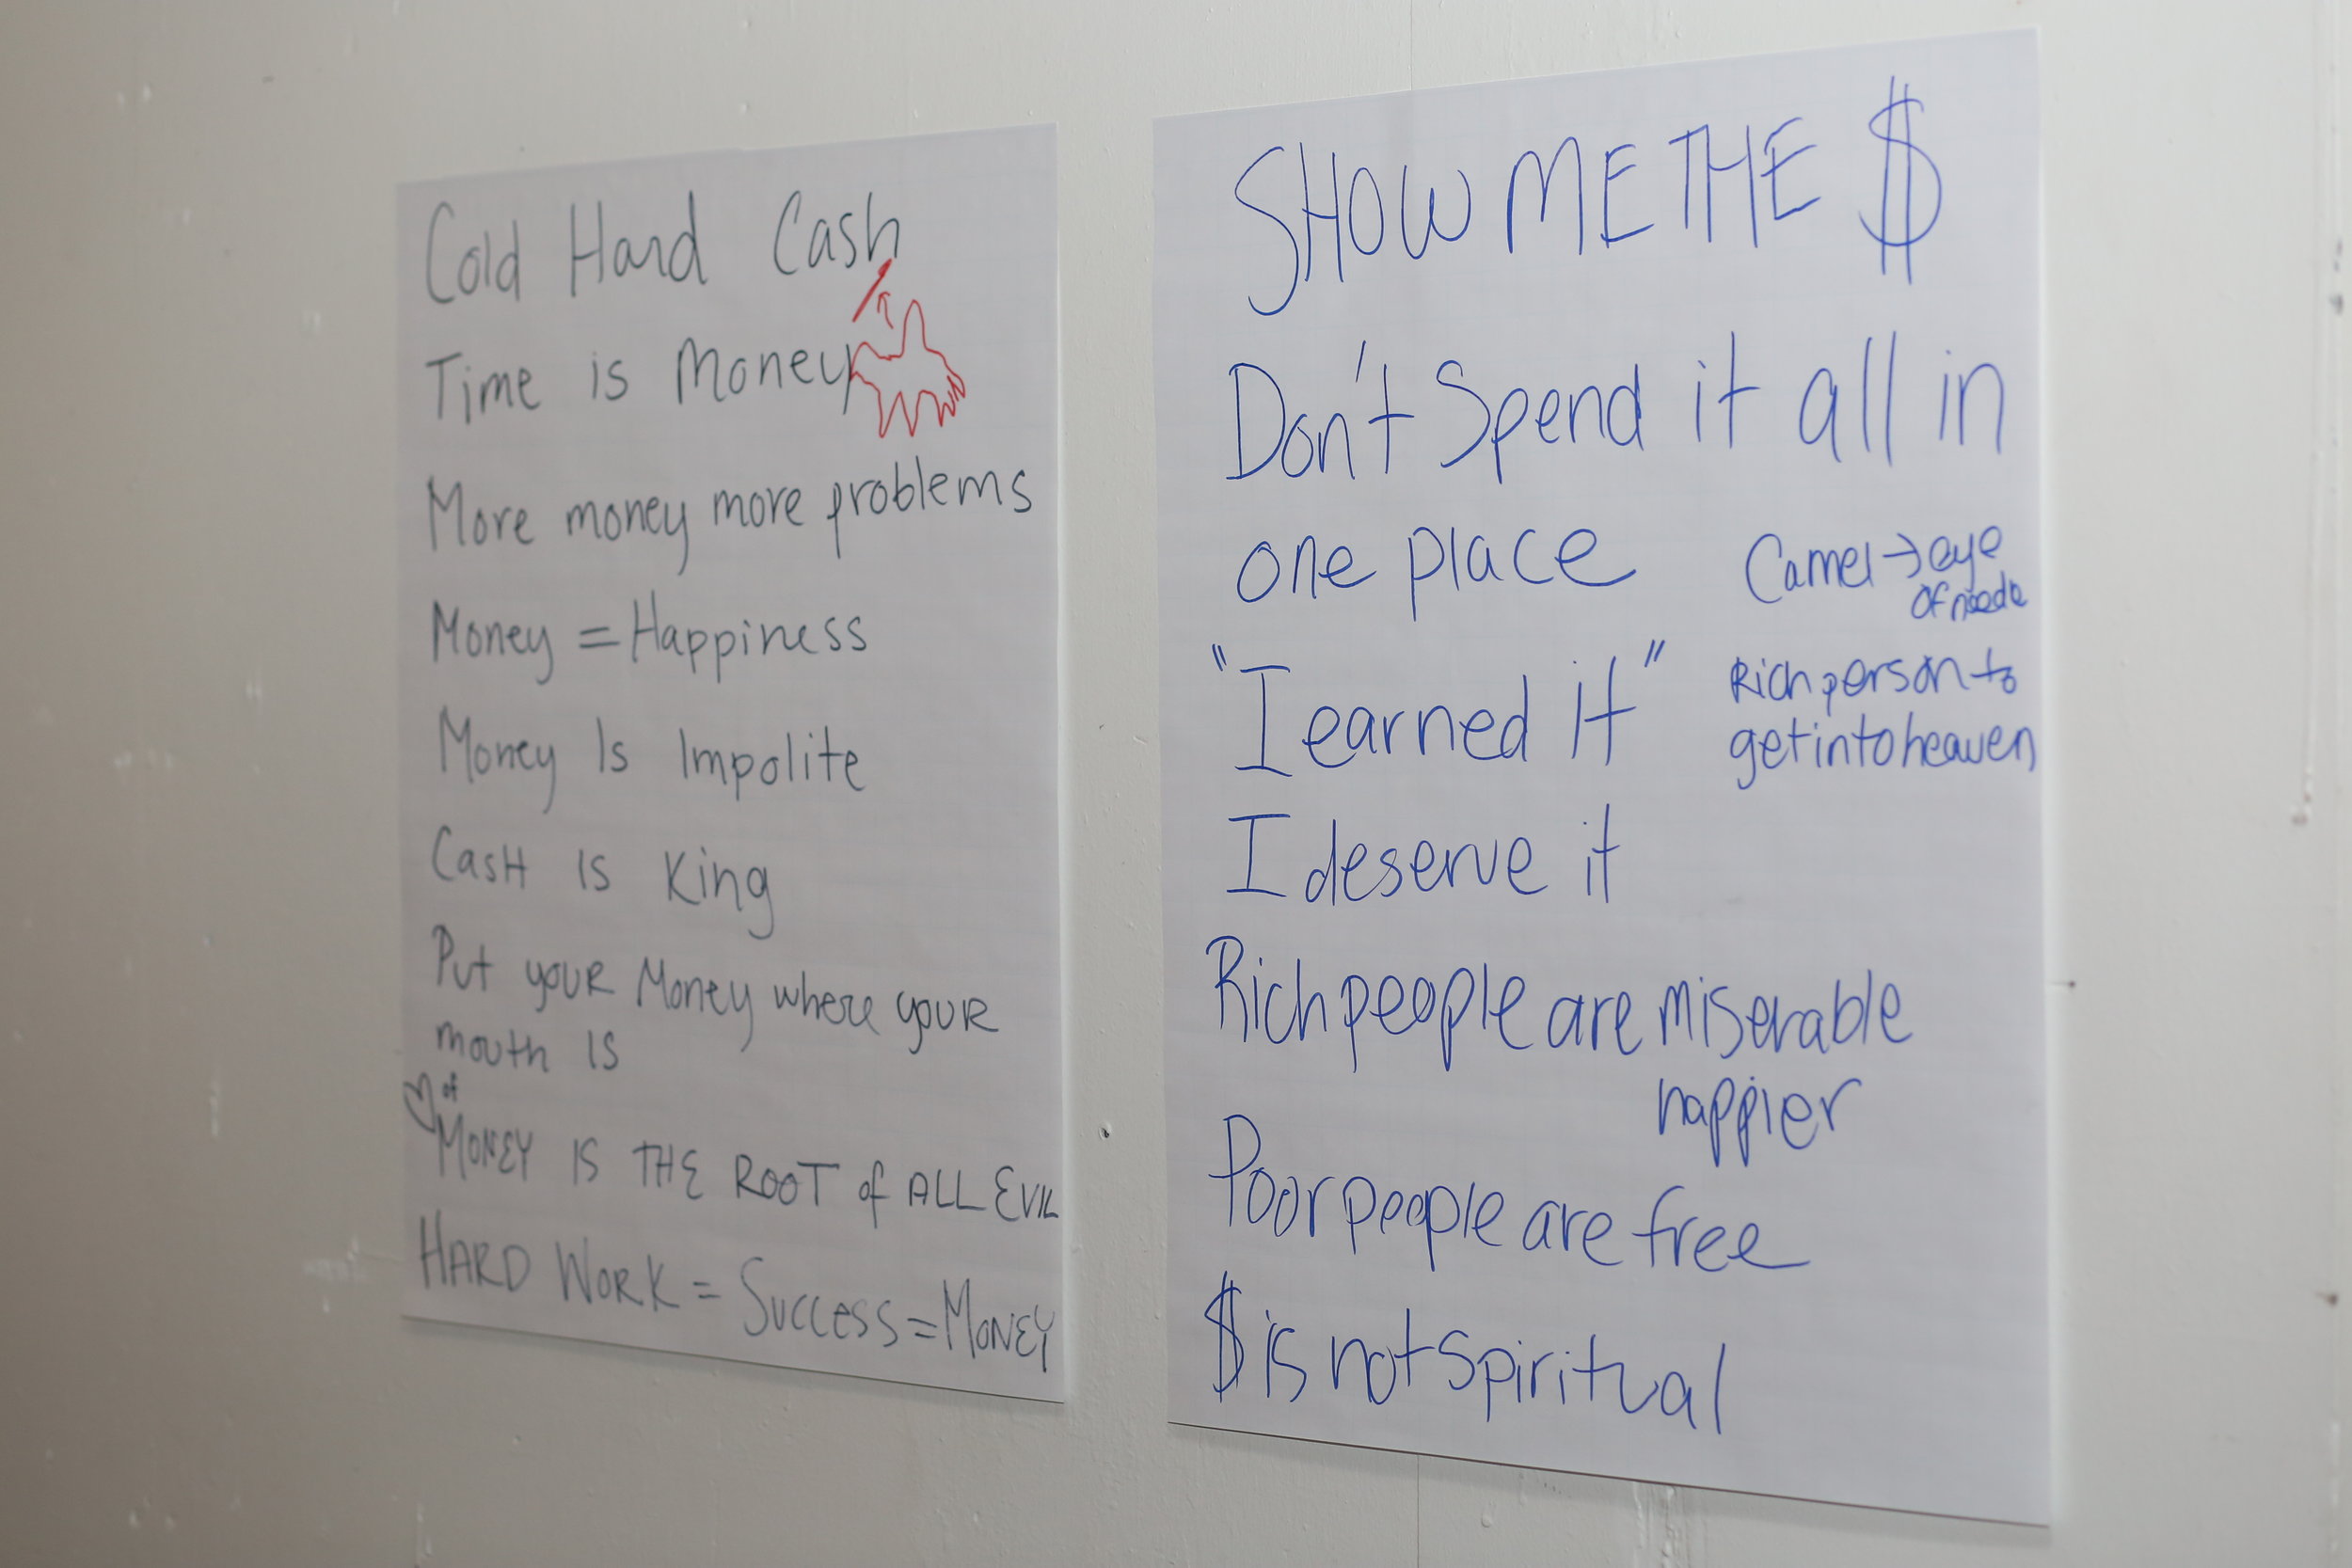 Cold Hard Cash
Time is Money
More money more problems
Money = Happiness
Money Is Impolite
CasH is King
Put your Money where your
mouth is
of
MONEY IS THE ROOT of ALL EVIL
HARD WORK = SUCCESS = MONEY
SHOW ME THE $
Don't Spend it all in
one place
Camel → eye
of neede
"I earned it"
Rich person to
get into heaven
I deserve it
Rich people are miserable
happier
Poor people are free
$ is not spiritual